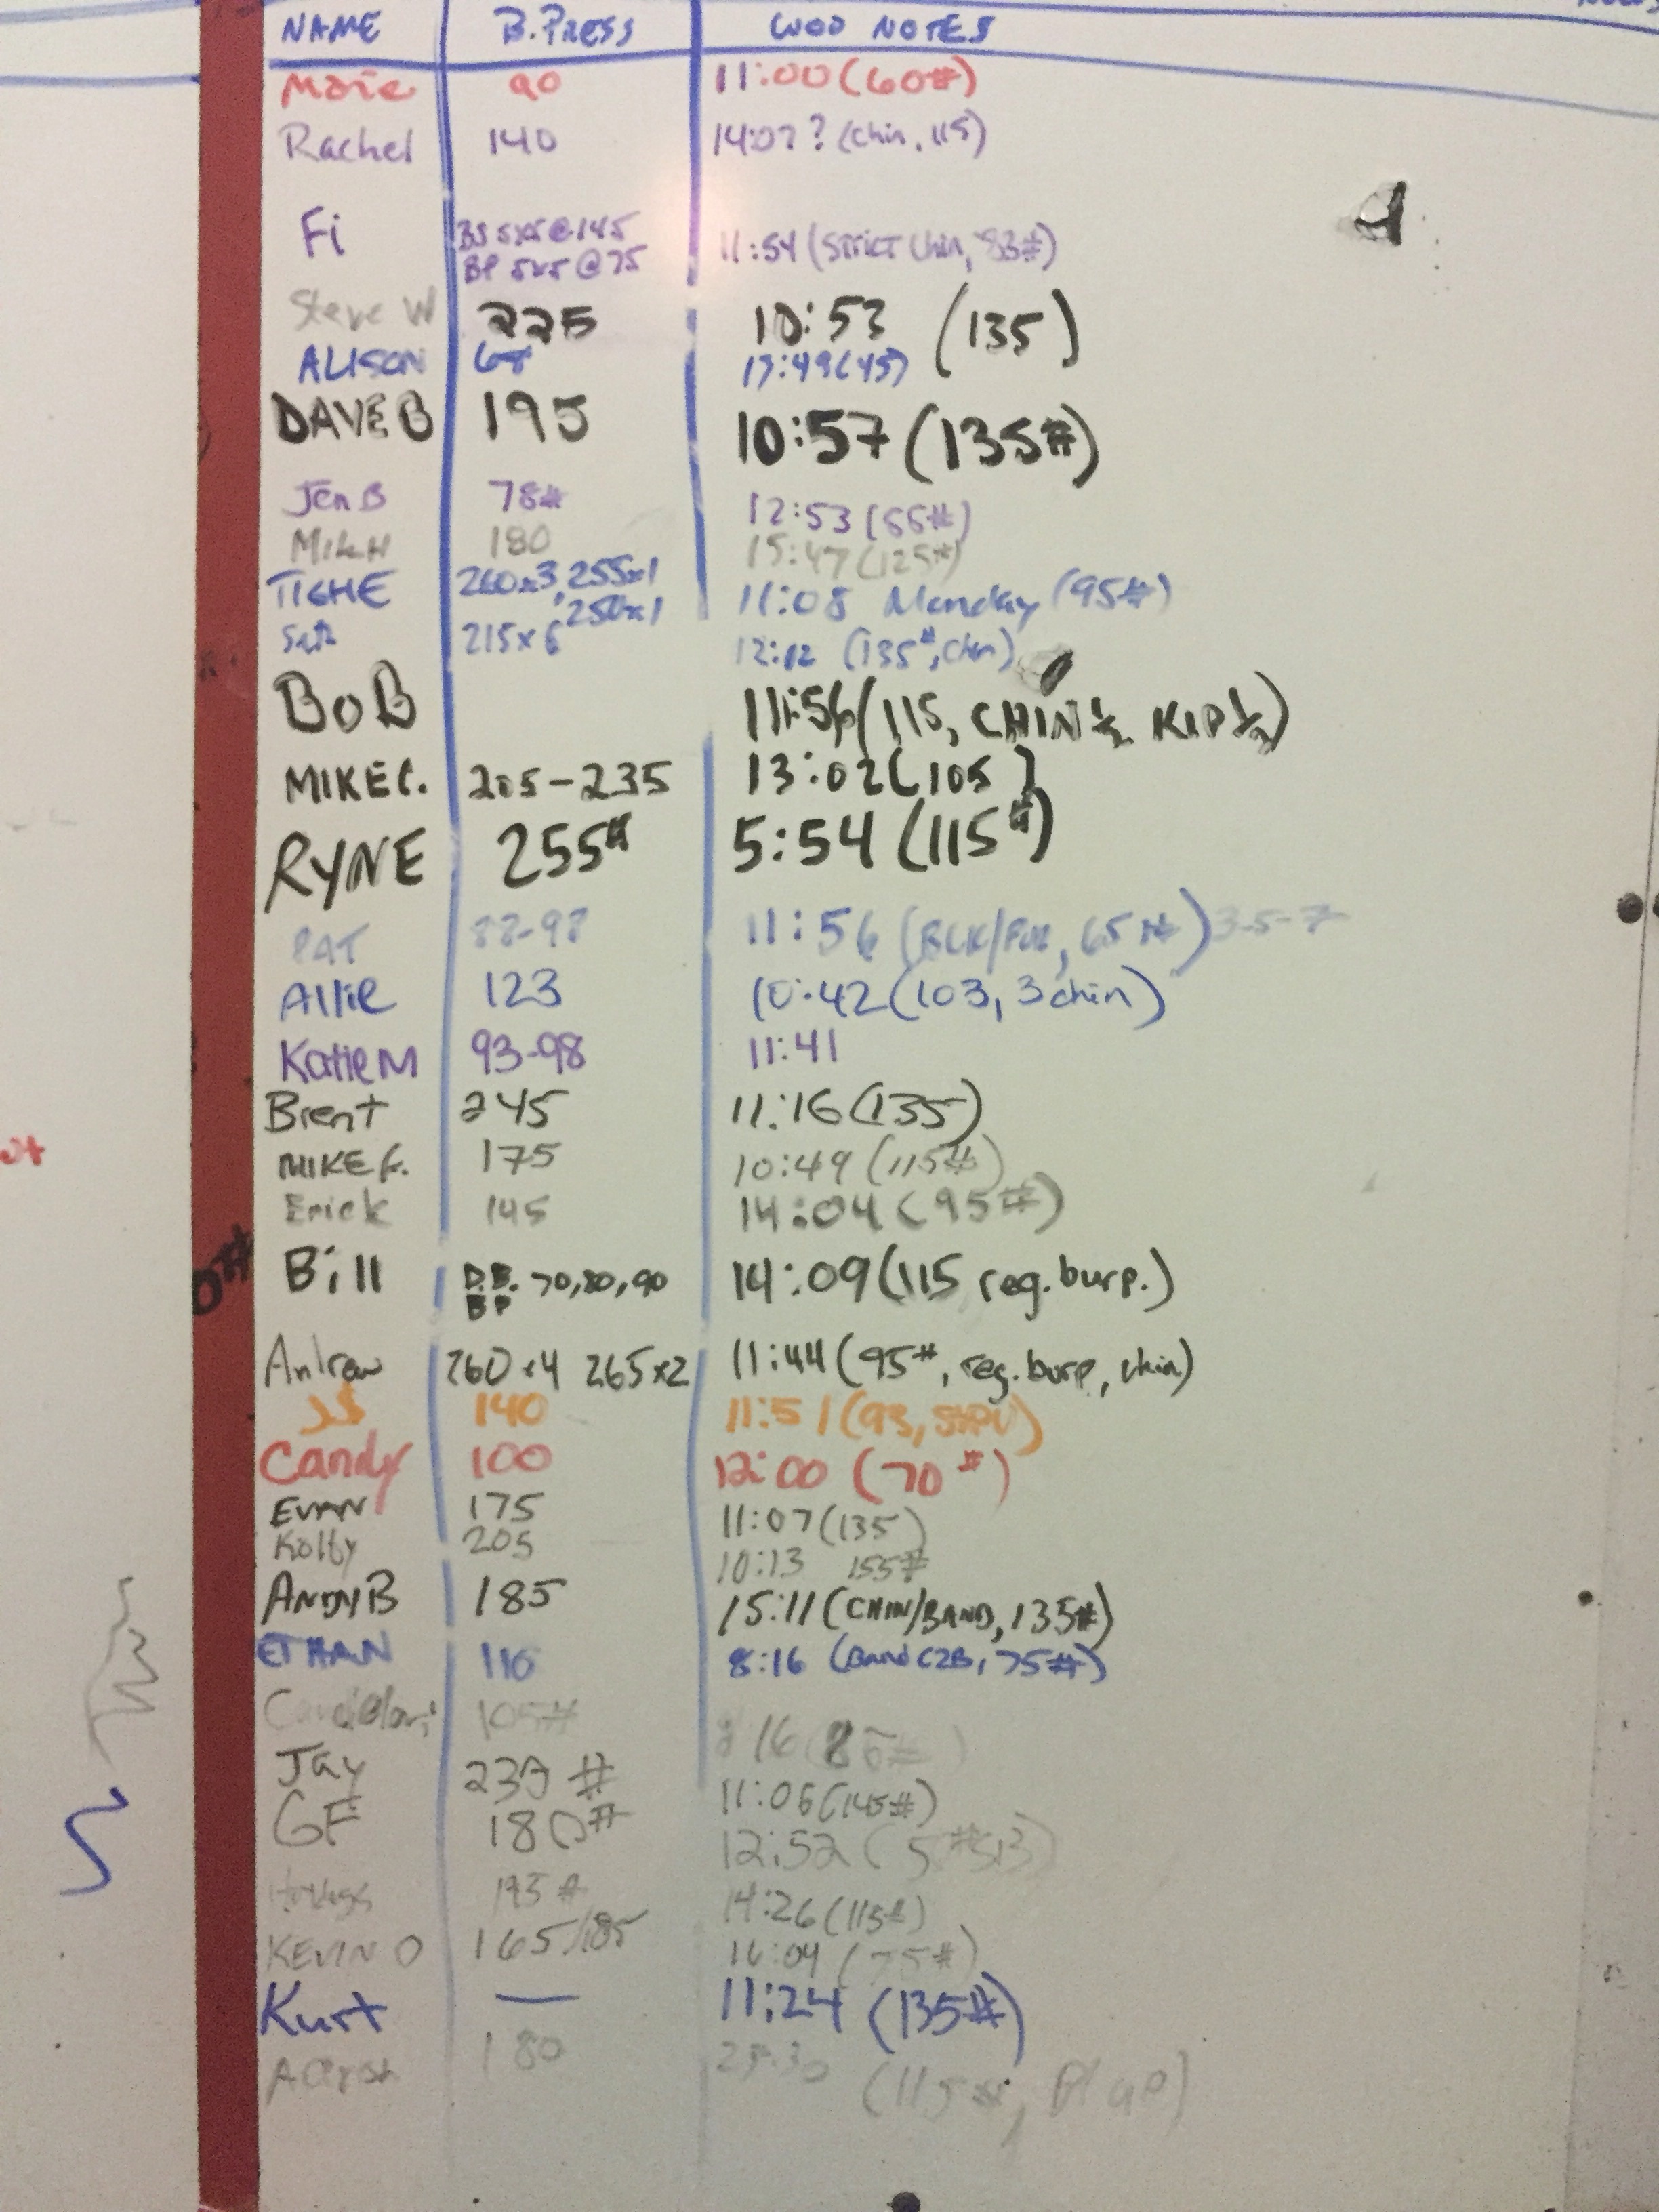 NAME B.PRESS WOD NOTES
Marie 90 11:00 (60#)
Rachel 140 14:07? (Chin, 115)
Fi BS 5x5 @ 145 11:54 (Strict Chin, 83#)
BP 5x5 @ 75
Steve W 225 10:53 (135)
ALISON 68 17:49 (45)
DAVE B 195 10:57 (135#)
Jen B 78# 12:53 (55#)
180 15:47 (125#)
TIGHE 260x3, 255x1 11:08 Monday (95#)
, 250x1
Seth 215x6 12:12 (135#, Chin)
BOB 11:56 (115, CHIN ½ KIP ½)
MIKE C. 205-235 13:02 (105)
RYNE 255# 5:54 (115#)
PAT 88-98 11:56 (65#) 3-5-7
Allie 123 10:42 (103, 3 chin)
Katie M 93-98 11:41
Brent 245 11:16 (135)
MIKE F. 175 10:49 (115#)
Erick 145 14:04 (95#)
Bill D.B. 70,80,90 14:09 (115 reg. burp.)
BP
Andrew 260x4 265x2 11:44 (95#, reg. burp, chin)
JS 140 11:51 (93,
Candy 100 12:00 (70#)
EVAN 175 11:07 (135)
Kolby 205 10:13 155#
ANDY B 185 15:11 (CHIN/BAND, 135#)
ETHAN 110 8:16 (Band C2B, 75#)
105# 16 85#
Jay 11:06 (145#)
GF 180# 12:52
195# 14:26 (115#)
KEVIN O 165/185 16:04 (75#)
Kurt — 11:24 (135#)
Aaron 180 (115#,